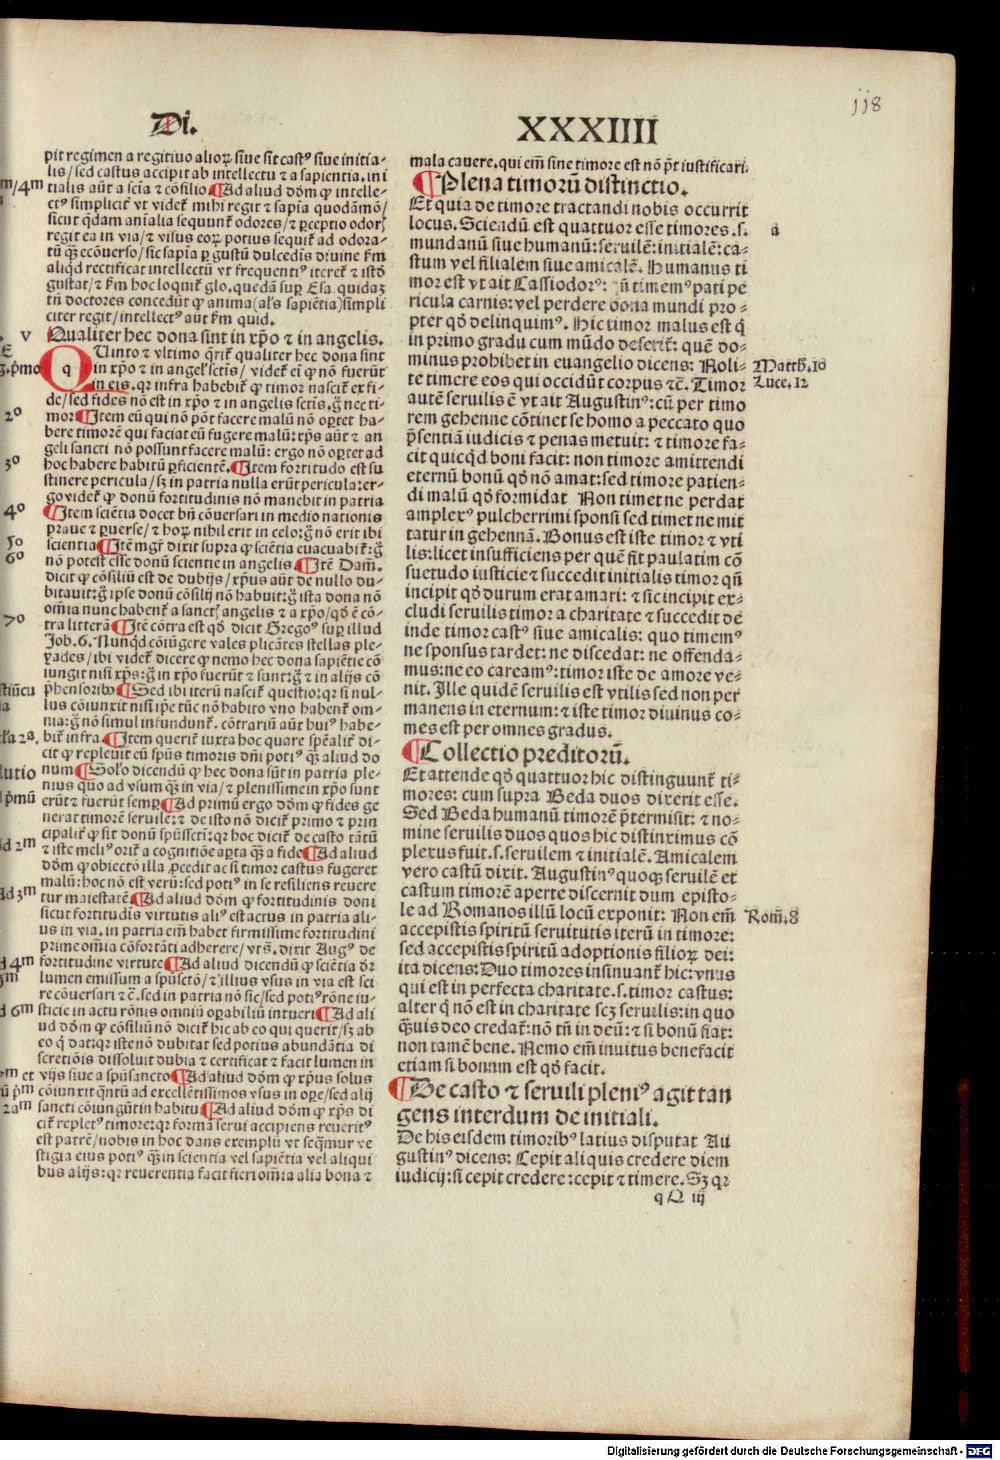 118
Di. XXXIIII
pit regimen a regitiuo alioꝝ siue sit castꝰ siue initia⸗
lis/ sed castus accipit ab intellectu ⁊ a sapientia. in i
tialis aūt a scīa ⁊ cōsilio ¶ Ad aliud dōm ꝙ intelle⸗
ctꝰ simplicit̄ vt videt᷑ mihi regit ⁊ sapīa quodāmō/
sicut q̄dam aīalia sequunt᷑ odores/ ⁊ ꝑceptio odoꝝ
regit ea in via/ ⁊ visus eoꝝ potius sequit᷑ ad odora⸗
tū q̄ȝ ecōuerso/ sic sapīa ꝑ gustū dulcedis diuine ẜm
aliqd rectificat intellectū vt frequentiꝰ iteret᷑ ⁊ istō
gustat/ ⁊ ẜm hoc loquit᷑ glo. quedā suꝑ Esa. quidaȝ
tn̄ doctores concedūt ꝙ anima (al̄s sapiētia) simpli
citer regit/ intellectꝰ aūt ẜm quid.
V Qualiter hec dona sint in xp̄o ⁊ in angelis.
Quinto ⁊ vltimo q̄rit᷑ qualiter hec dona sint
in xp̄o ⁊ in angel̄ sctīs/ videt᷑ eī ꝙ nō fuerūt
in eis. qꝛ infra habebit᷑ ꝙ timor nascit᷑ ex fi⸗
de/ sed fides nō est in xp̄o ⁊ in angelis sctīs. g̊ nec ti⸗
2º mor ¶ Item eū qui nō pōt facere malū nō oꝑtet ha⸗
bere timorē qui faciat eū fugere malū: xp̄s aūt ⁊ an
geli sancti nō possunt facere malū: ergo nō oꝑtet ad
3º hoc habere habitū ꝑficientē. ¶ Item fortitudo est su
stinere pericula/ sȝ in patria nulla erūt pericula: er⸗
go videt᷑ ꝙ donū fortitudinis nō manebit in patria
4º ¶ Item sciētia docet bn̄ cōuersari in medio nationis
praue ⁊ ꝑuerse/ ⁊ hoꝝ nihil erit in celo: g̊ nō erit ibi
5º scientia ¶ Itē mgr̄ dixit supra ꝙ sciētia euacuabit᷑: g̊
6º nō potest esse donū scientie in angelis ¶ Itē Dam̄.
dicit ꝙ cōsiliū est de dubijs/ xp̄us aūt de nullo du⸗
bitauit: g̊ ipse donū cōsilij nō habuit: g̊ ista dona nō
om̄ia nunc habent᷑ a sanctꝭ angelis ⁊ a xp̄o/ qd̄ ē cō⸗
7º tra litterā ¶ Itē cōtra est qd̄ dicit Gregoꝰ suꝑ illud
Job. 6. Nunqd cōiūgere vales plicātes stellas ple⸗
ꝑades/ ibi videt᷑ dicere ꝙ nemo hec dona sapiētie cō
iungit nisi xp̄s: g̊ in xp̄o fuerūt ⁊ sunt: g̊ ⁊ in alijs cō
p̄hensoribꝰ ¶ Sed ibi iterū nascit᷑ questio: qꝛ si nul⸗
lus cōiunxit nisi ip̄e tūc nō habito vno habent᷑ om⸗
nia: g̊ nō simul infundunt᷑. cōtrariū aūt huiꝰ habe⸗
bit᷑ infra ¶ Item querit᷑ iuxta hoc quare sp̄ealit᷑ di⸗
cit ꝙ repleuit eū sp̄us timoris dn̄i potiꝰ q̄ȝ aliud do
num ¶ Sol̄o dicendū ꝙ hec dona sūt in patria ple⸗
nius quo ad vsum q̄ȝ in via/ ⁊ plenissime in xp̄o sunt
erūt ⁊ fuerūt semꝑ ¶ Ad primū ergo dōm ꝙ fides ge
nerat timorē seruilē: ⁊ de isto nō dicit᷑ primo ⁊ prin
cipalit᷑ ꝙ sit donū sp̄ussctī: qꝛ hoc dicit᷑ de casto tātū
⁊ iste meliꝰ orit᷑ a cognitiōe aꝑta q̄ȝ a fide ¶ Ad aliud
dōm ꝙ obiectō illa ꝓcedit ac si timor castus fugeret
malū: hoc nō est verū: sed potiꝰ in se resiliens reuere
tur maiestatē ¶ Ad aliud dōm ꝙ fortitudinis doni
sicut fortitudīs virtutis aliꝰ est actus in patria ali⸗
us in via. in patria em̄ habet firmissime fortitudini
prime om̄ia cōfortāti adherere/ vtꝭ. dixit Augꝰ de
fortitudine virtute ¶ Ad aliud dicendū ꝙ sciētia dr̄
lumen emissum a sp̄usctō/ ⁊ illius vsus in via est sci
re cōuersari ⁊c̄. sed in patria nō sic/ sed potiꝰ rōne iu⸗
sticie in actu rōnis omniū oꝑabiliū intueri ¶ Ad ali
ud dōm ꝙ cōsiliū nō dicit᷑ hic ab eo qui querit/ sȝ ab
eo q̄ dat: qꝛ iste nō dubitat sed potius abundātia di
scretiōis dissoluit dubia ⁊ certificat ⁊ facit lumen in
vijs siue a sp̄usancto ¶ Ad aliud dōm ꝙ xp̄us solus
cōiunxit q̄ntū ad excellētissimos vsus in oꝑe/ sed alij
sancti cōiungūt in habitu ¶ Ad aliud dōm ꝙ xp̄s di
cit᷑ repletꝰ timore: qꝛ formā serui accipiens reueritꝰ
est patrē/ nobis in hoc dans exemplū vt seq̄mur ve
stigia eius potiꝰ q̄ȝ in scientia vel sapiētia vel aliqui
bus alijs: qꝛ reuerentia facit fieri om̄ia alia bona ⁊
mala cauere. qui em̄ sine timore est nō p̄t iustificari.
¶ Plena timorū distinctio.
Et quia de timore tractandi nobis occurrit
locus. Sciendū est quattuor esse timores .s. a
mundanū siue humanū: seruilē: initialē: ca⸗
stum vel filialem siue amicalē. Humanus ti
mor est vt ait Cassiodorꝰ: timemꝰ pati pe
ricula carnis: vel perdere bona mundi pro⸗
pter qd̄ delinquimꝰ. Hic timor malus est q̄
in primo gradu cum mūdo deserit᷑: quē do⸗
minus prohibet in euangelio dicens: Noli⸗ Matth. 10
te timere eos qui occidūt corpus ⁊c̄. Timor Luce. 12
autē seruilis ē vt ait Augustinꝰ: cū per timo
rem gehenne cōtinet se homo a peccato quo
p̄sentiā iudicis ⁊ penas metuit: ⁊ timore fa⸗
cit quicqd boni facit: non timore amittendi
eternū bonū qd̄ nō amat: sed timore patien⸗
di malū qd̄ formidat Non timet ne perdat
amplexꝰ pulcherrimi sponsi sed timet ne mit
tatur in gehennā. Bonus est iste timor ⁊ vti
lis: licet insufficiens per quē fit paulatim cō
suetudo iusticie ⁊ succedit initialis timor qn̄
incipit qd̄ durum erat amari: ⁊ sic incipit ex⸗
cludi seruilis timor a charitate ⁊ succedit de
inde timor castꝰ siue amicalis: quo timemꝰ
ne sponsus tardet: ne discedat: ne offenda⸗
mus: ne eo careamꝰ: timor iste de amore ve⸗
nit. Ille quidē seruilis est vtilis sed non per
manens in eternum: ⁊ iste timor diuinus co⸗
mes est per omnes gradus.
¶ Collectio preditorū.
Et attende qd̄ quattuor hic distinguunt᷑ ti⸗
mores: cum supra Beda duos dixerit esse.
Sed Beda humanū timorē p̄termisit: ⁊ no⸗
mine seruilis duos quos hic distinximus cō
plexus fuit .s. seruilem ⁊ initialē. Amicalem
vero castū dixit. Augustinꝰ quoqȝ seruilē et
castum timorē aperte discernit dum episto⸗
le ad Romanos illū locū exponit: Non em̄ Rom̄. 8
accepistis spiritū seruitutis iterū in timore:
sed accepistis spiritū adoptionis filioꝝ dei:
ita dicens: Duo timores insinuant᷑ hic: vnus
qui est in perfecta charitate .s. timor castus:
alter q̄ nō est in charitate scȝ seruilis: in quo
q̄ȝuis deo credat᷑: nō tn̄ in deū: ⁊ si bonū fiat:
non tamē bene. Nemo em̄ inuitus benefacit
etiam si bonum est qd̄ facit.
¶ De casto ⁊ seruili pleniꝰ agit tan
gens interdum de initiali.
De his eisdem timoribꝰ latius disputat Au
gustinꝰ dicens: Cepit aliquis credere diem
iudicij: si cepit credere: cepit ⁊ timere. Sȝ qꝛ
q Q iij
Digitalisierung gefördert durch die Deutsche Forschungsgemeinschaft - DFG